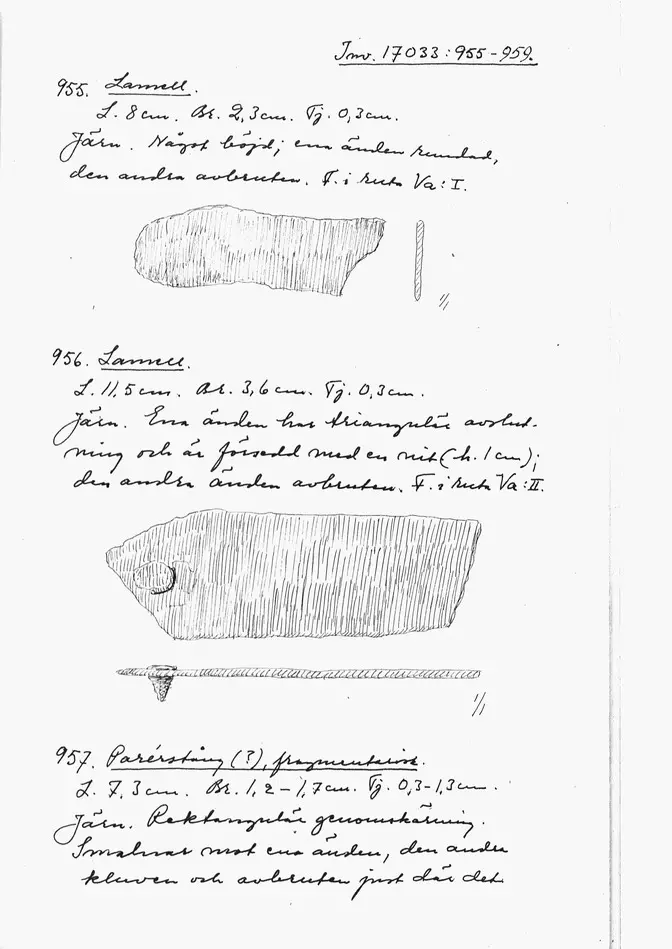 Inv. 17033:955-959.
955. Lamell.
L. 8 cm. Br. 2,3 cm. Tj. 0,3 cm.
Järn. Något böjd; ena änden rundad,
den andra avbruten. F. i ruta Va:I.
1/1
956. Lamell.
L. 11,5 cm. Br. 3,6 cm. Tj. 0,3 cm.
Järn. Ena änden har triangulär avslut-
ning och är försedd med en nit (h. 1 cm);
den andra änden avbruten. F. i ruta Va:II.
1/1
957. Parérstång (?), fragmentarisk.
L. 7,3 cm. Br. 1,2-1,7 cm. Tj. 0,3-1,3 cm.
Järn. Rektangulär genomskärning.
Smalnar mot ena änden, den andra
kluven och avbruten just där det